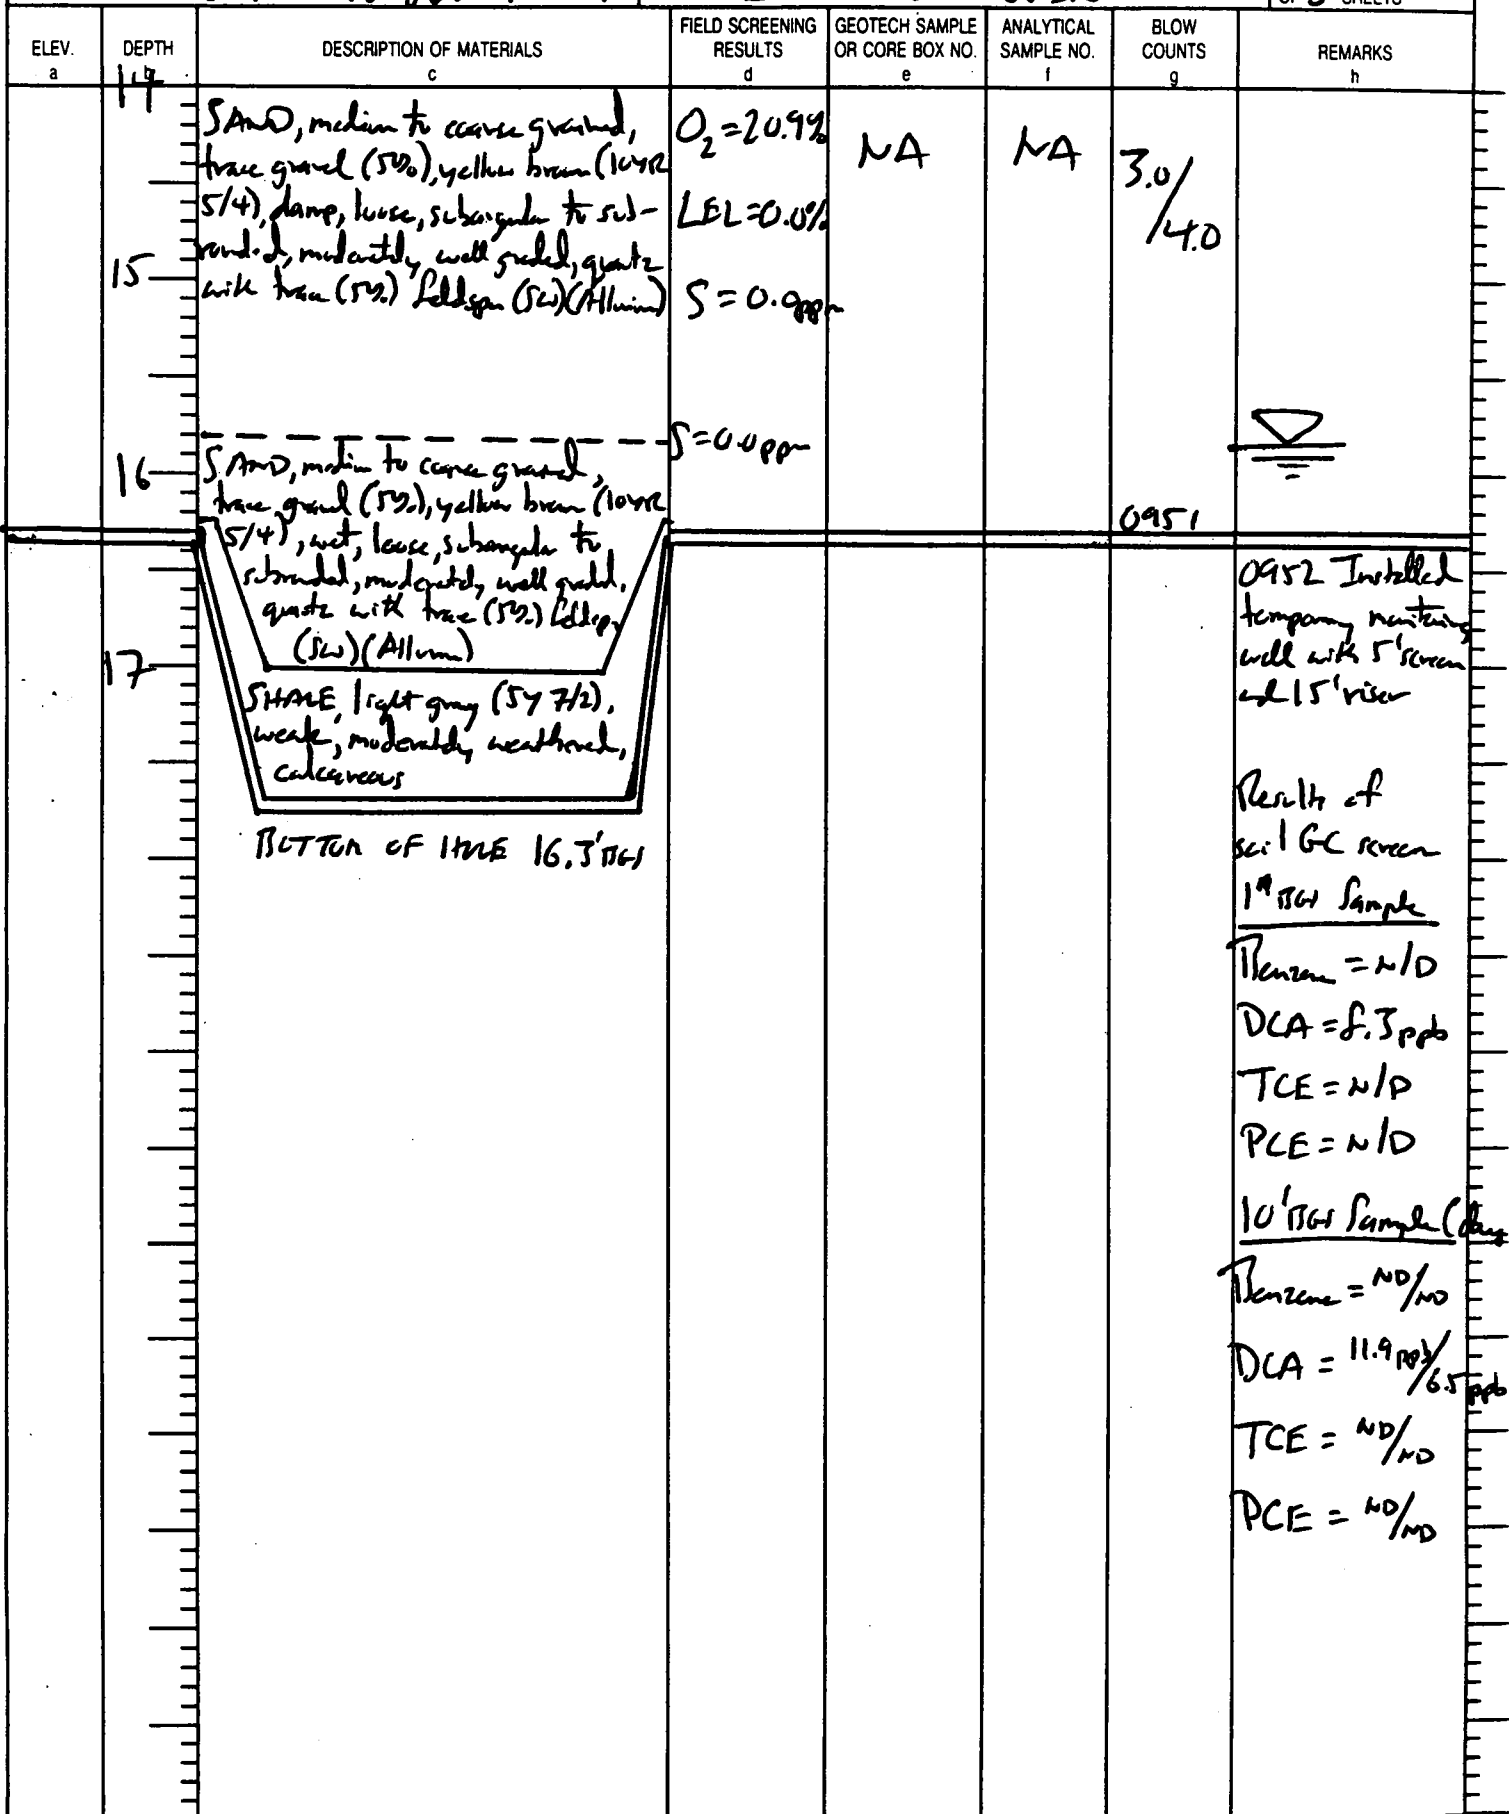 SHEETS
ELEV.
a
DEPTH
DESCRIPTION OF MATERIALS
c
FIELD SCREENING
RESULTS
d
GEOTECH SAMPLE
OR CORE BOX NO.
e
ANALYTICAL
SAMPLE NO.
f
BLOW
COUNTS
g
REMARKS
h
14
SAND, medium to coarse grained,
trace gravel (5%), yellow brown (10YR
5/4), damp, loose, subangular to sub-
rounded, moderately well graded, quartz
with trace (5%) feldspar (SW)(Alluvium)
O2=20.9%
LEL=0.0%
S=0.0ppm
NA
NA
3.0/
4.0
15
S=0.0ppm
16
SAND, medium to coarse grained,
trace gravel (5%), yellow brown (10YR
5/4), wet, loose, subangular to
subrounded, moderately well graded,
quartz with trace (5%) feldspar
(SW)(Alluvium)
0951
17
SHALE, light gray (5Y 7/2),
weak, moderately weathered,
calcareous
BOTTOM OF HOLE 16.3'BGS
0952 Installed
temporary monitoring
well with 5'screen
and 15'riser
Results of
soil GC screen
BGS Sample
Benzene = N/D
DCA = 8.3ppb
TCE = N/D
PCE = N/D
10'BGS Sample
Benzene = ND/ND
DCA = 11.9ppb/6.5ppb
TCE = ND/ND
PCE = ND/ND